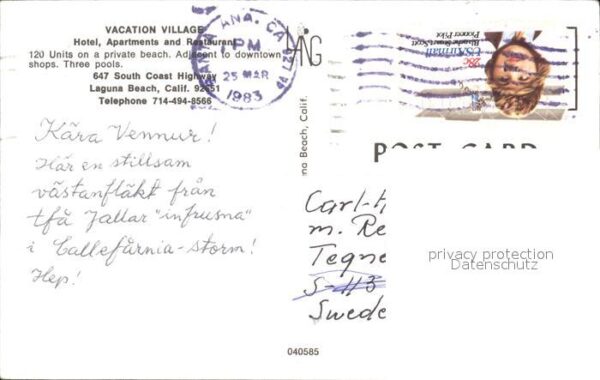 VACATION VILLAGE
Hotel, Apartments and Restaurant
120 Units on a private beach. Adjacent to downtown
shops. Three pools.
647 South Coast Highway
Laguna Beach, Calif. 92651
Telephone 714-494-8566
ANA, CA 927
PM
25 MAR
1983
USAirmail
28c
Blanche Stuart Scott
Pioneer Pilot
na Beach, Calif.
POST CARD
Kära Vennur!
Här en stillsam
västanfläkt från
tfå Jallar "infrusna"
i Callefårnia-storm!
Hep!
Carl-
m. Re
Tegne
S-113
Swede
privacy protection
Datenschutz
040585